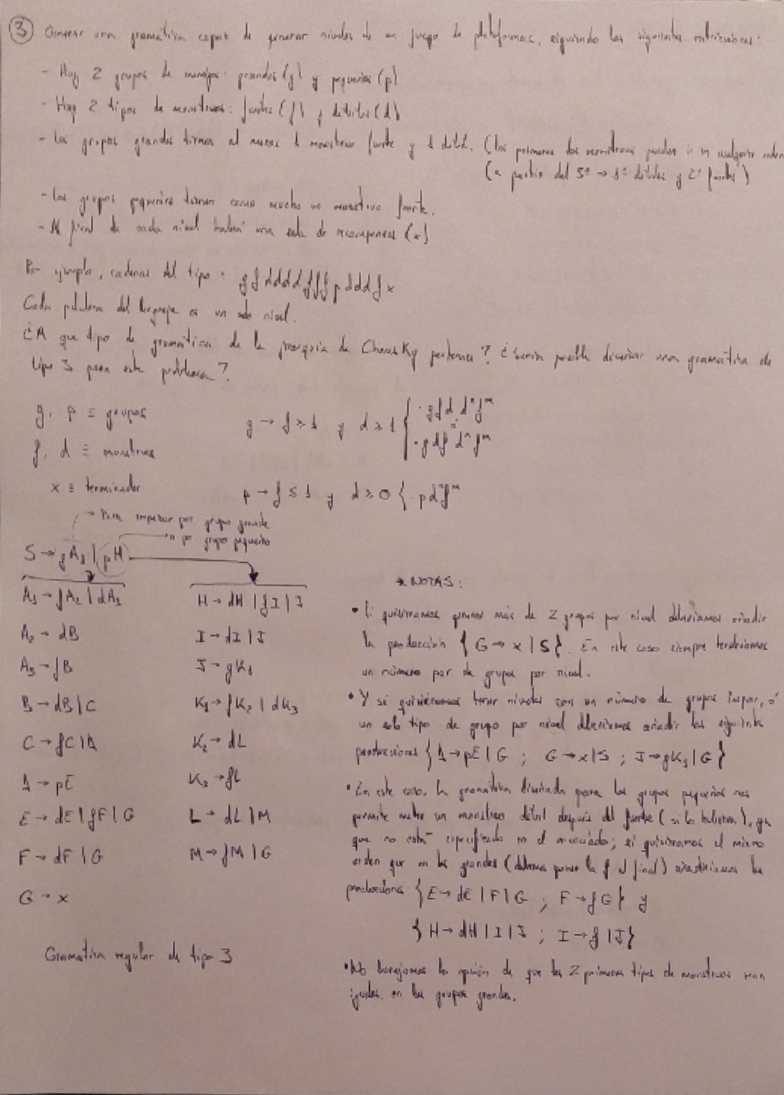 ③ Generar una gramática capaz de generar niveles de un juego de plataformas, siguiendo las siguientes restricciones:
- Hay 2 grupos de enemigos: grandes (g) y pequeños (p)
- Hay 2 tipos de monstruos: fuertes (f) y débiles (d)
- Los grupos grandes tienen al menos 1 monstruo fuerte y 1 débil. (los primeros dos monstruos pueden ir en cualquier orden
(a partir del 3º → 1º débiles y 2º fuertes)
- Los grupos pequeños tienen como mucho un monstruo fuerte.
- Al final de cada nivel habrá una sala de recompensas (x)
Por ejemplo, cadenas del tipo: g f d d d d f f f p d d d f x
Cada palabra del lenguaje es un solo nivel.
¿A que tipo de gramática de la jerarquía de Chomsky pertenece? ¿Sería posible diseñar una gramática de
tipo 3 para este problema?
g, p ≡ grupos
f, d ≡ monstruos
x ≡ terminador
g → f ≥ 1 y d ≥ 1 { · g f d dⁿ fᵐ
o
· g d f dⁿ fᵐ
p → f ≤ 1 y d ≥ 0 { · p dⁿ fᵐ
→ Para empezar por grupo grande
→ " por grupo pequeño
S → gA₁ | pH
A₁ → fA₂ | dA₃
A₂ → dB
A₃ → fB
B → dB | C
C → fC | D
D → pE
E → dE | fF | G
F → dF | G
G → x
H → dH | fI | J
I → dI | J
J → gK₁
K₁ → fK₂ | dK₃
K₂ → dL
K₃ → fL
L → dL | M
M → fM | G
Gramática regular de tipo 3
* NOTAS:
• Si quisieramos generar más de 2 grupos por nivel deberíamos añadir
la producción { G → x | S }. En este caso siempre tendríamos
un número par de grupos por nivel.
• Y si quisieramos tener niveles con un número de grupos impar, ó
un solo tipo de grupo por nivel deberíamos añadir las siguientes
producciones { D → pE | G ; G → x | S ; J → gK₁ | G }
• En este caso, la gramática diseñada para los grupos pequeños nos
permite meter un monstruo débil después del fuerte (si lo hubiera), ya
que no está especificado en el enunciado; si quisieramos el mismo
orden que en los grandes (debemos poner la f al final) añadiríamos las
producciones { E → dE | F | G ; F → fG } y
{ H → dH | I | J ; I → f | J }
• No barajamos la opción de que los 2 primeros tipos de monstruos sean
iguales, en los grupos grandes.